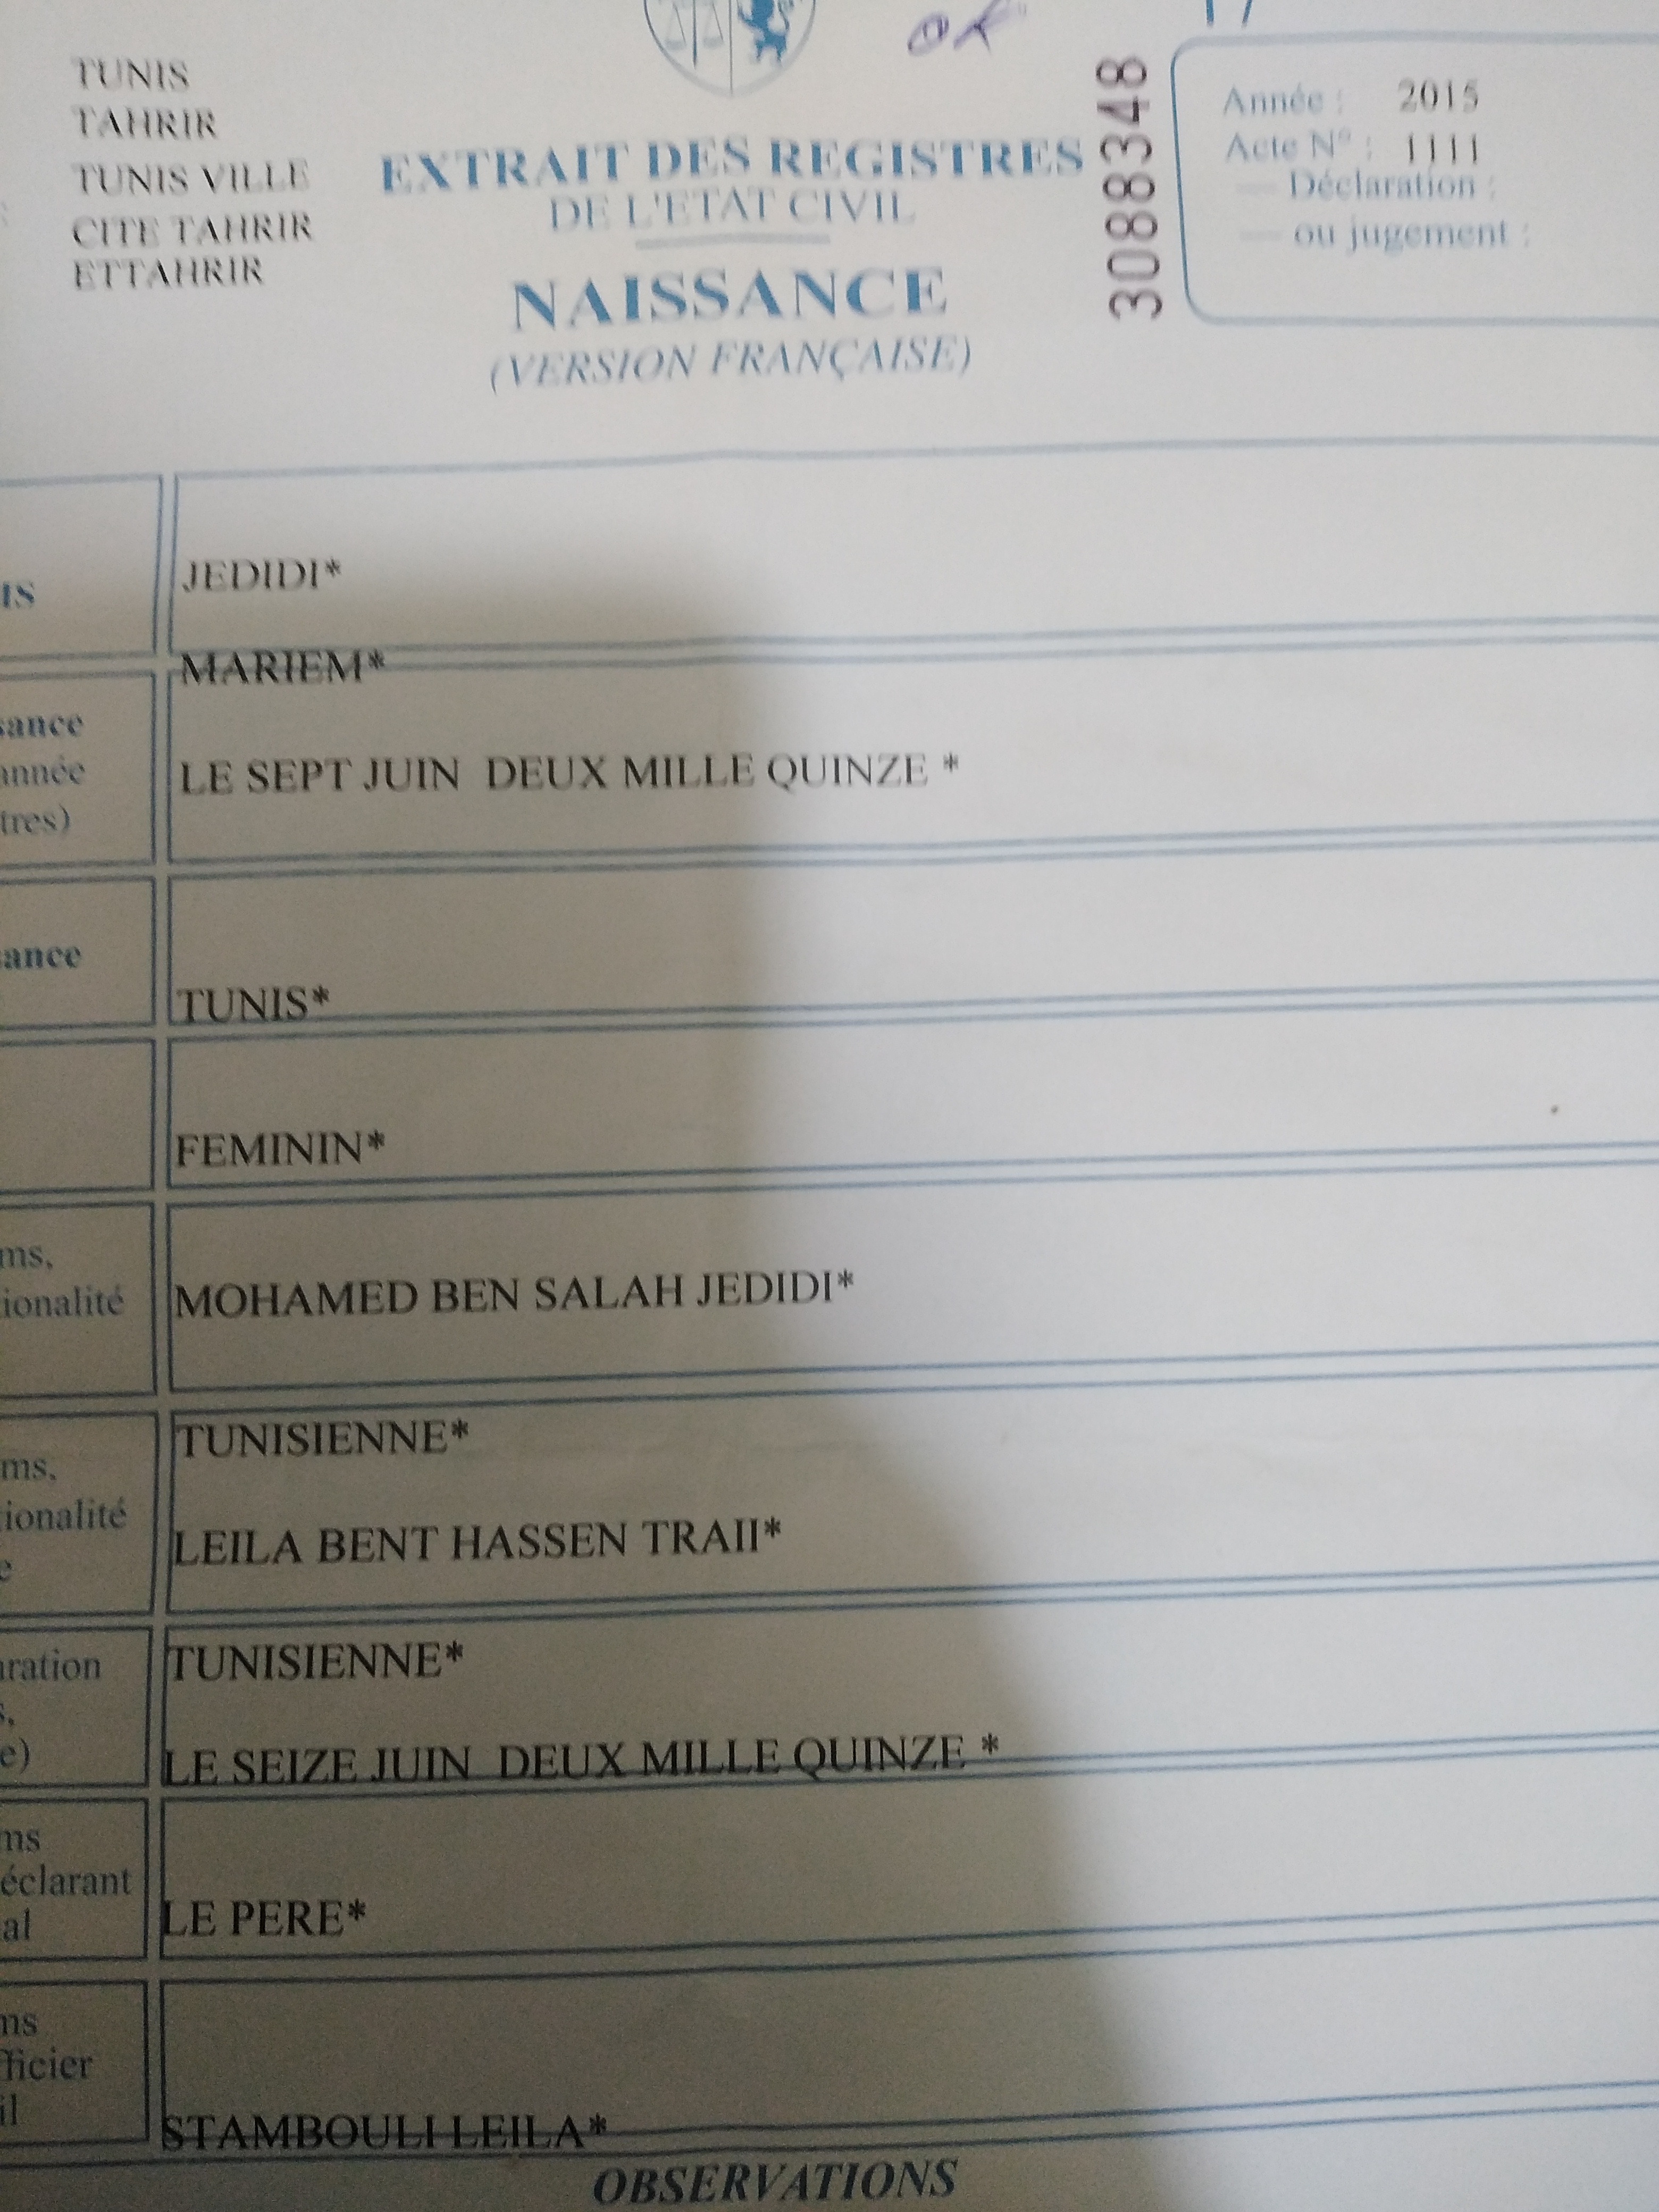 TUNIS
TAHRIR
TUNIS VILLE
CITE TAHRIR
ETTAHRIR
OK
EXTRAIT DES REGISTRES
DE L'ETAT CIVIL
NAISSANCE
(VERSION FRANÇAISE)
3088348
Année : 2015
Acte N° : 1111
— Déclaration :
— ou jugement :
IS
JEDIDI*
MARIEM*
sance
année
tres)
LE SEPT JUIN DEUX MILLE QUINZE *
sance
TUNIS*
FEMININ*
ms,
ionalité
MOHAMED BEN SALAH JEDIDI*
TUNISIENNE*
ms,
ionalité
e
LEILA BENT HASSEN TRAII*
TUNISIENNE*
aration
s,
e)
LE SEIZE JUIN DEUX MILLE QUINZE *
ms
éclarant
al
LE PERE*
ms
fficier
il
STAMBOULI LEILA*
OBSERVATIONS